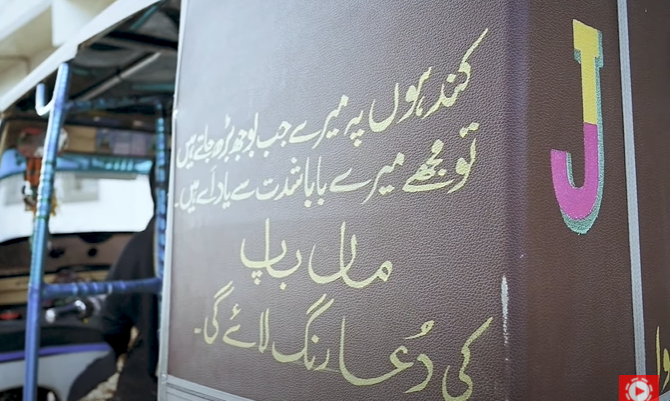 کندہوں پہ میرے جب بوجھ بڑھ جاتے ہیں
تو مجھے میرے بابا شدت سے یاد آتے ہیں۔
ماں باپ
کی دُعا رنگ لائے گی۔
J